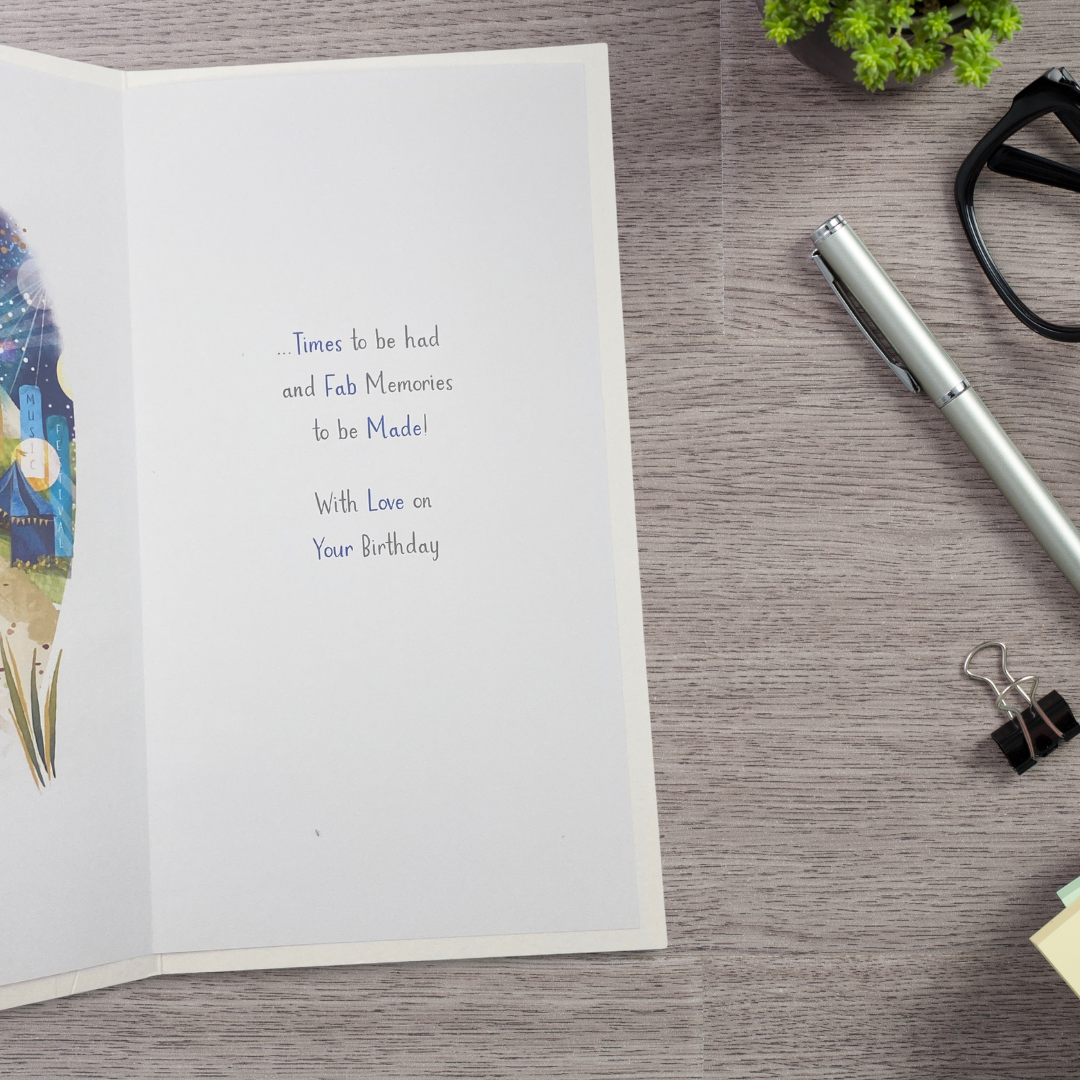 MUSIC
FESTIVAL
...Times to be had
and Fab Memories
to be Made!
With Love on
Your Birthday